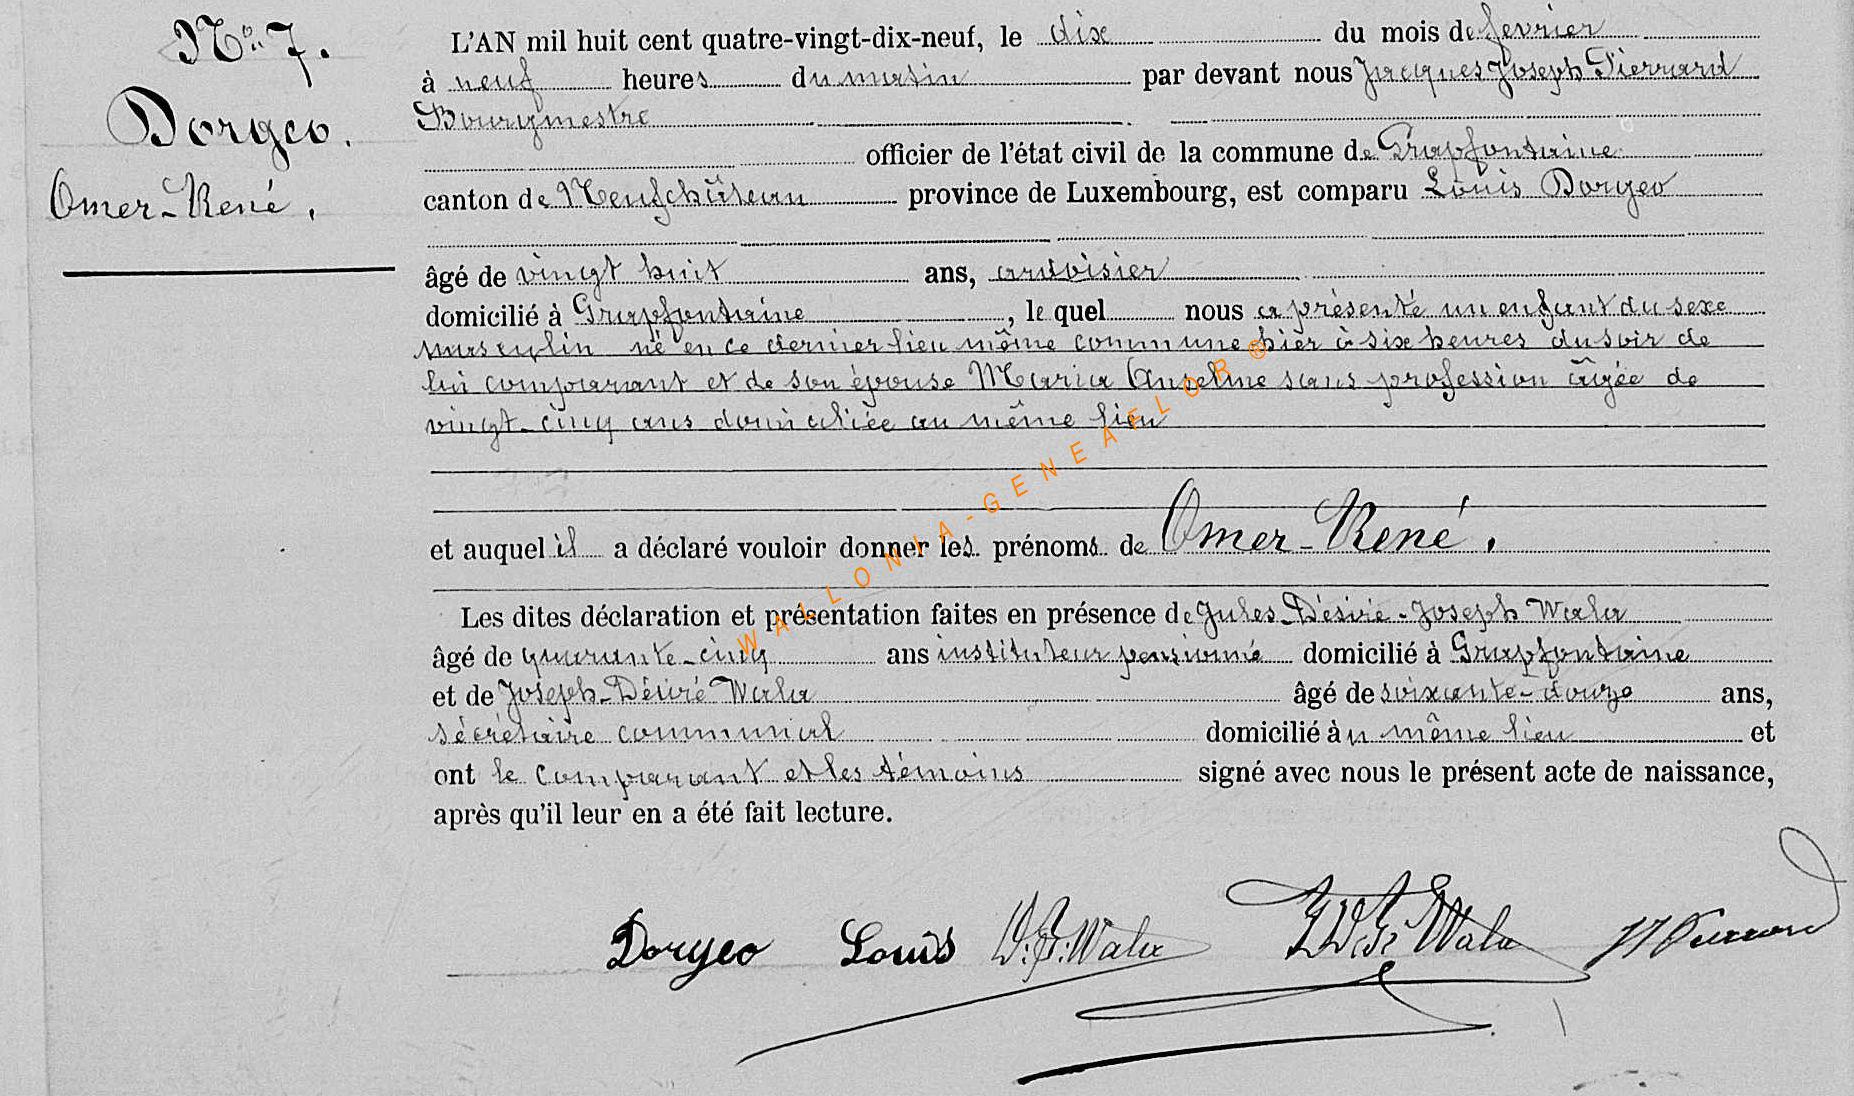 N° 7.
Dorgeo.
Omer-René.
L'AN mil huit cent quatre-vingt-dix-neuf, le dix du mois de fevrier
à neuf heures du matin par devant nous Jacques Joseph Pierrard
Bourgmestre
officier de l'état civil de la commune de Grapfontaine
canton de Neufchâteau province de Luxembourg, est comparu Louis Dorgeo
âgé de vingt huit ans, ardoisier
domicilié à Grapfontaine, le quel nous a présenté un enfant du sexe
masculin né en ce dernier lieu même commune hier à six heures du soir de
lui comparant et de son épouse Maria Anselme sans profession âgée de
vingt-cinq ans domiciliée au même lieu
et auquel il a déclaré vouloir donner les prénoms de Omer-René.
Les dites déclaration et présentation faites en présence de Jules-Désiré-Joseph Wala
âgé de quarante-cinq ans instituteur pensionné domicilié à Grapfontaine
et de Joseph-Désiré Wala âgé de soixante-douze ans,
sécrétaire communal domicilié au même lieu et
ont le comparant et les témoins signé avec nous le présent acte de naissance,
après qu'il leur en a été fait lecture.
Dorgeo Louis D.J. Wala J.D.J. Wala JJ Pierrard
WALLONIA-GENEAFLOR ®